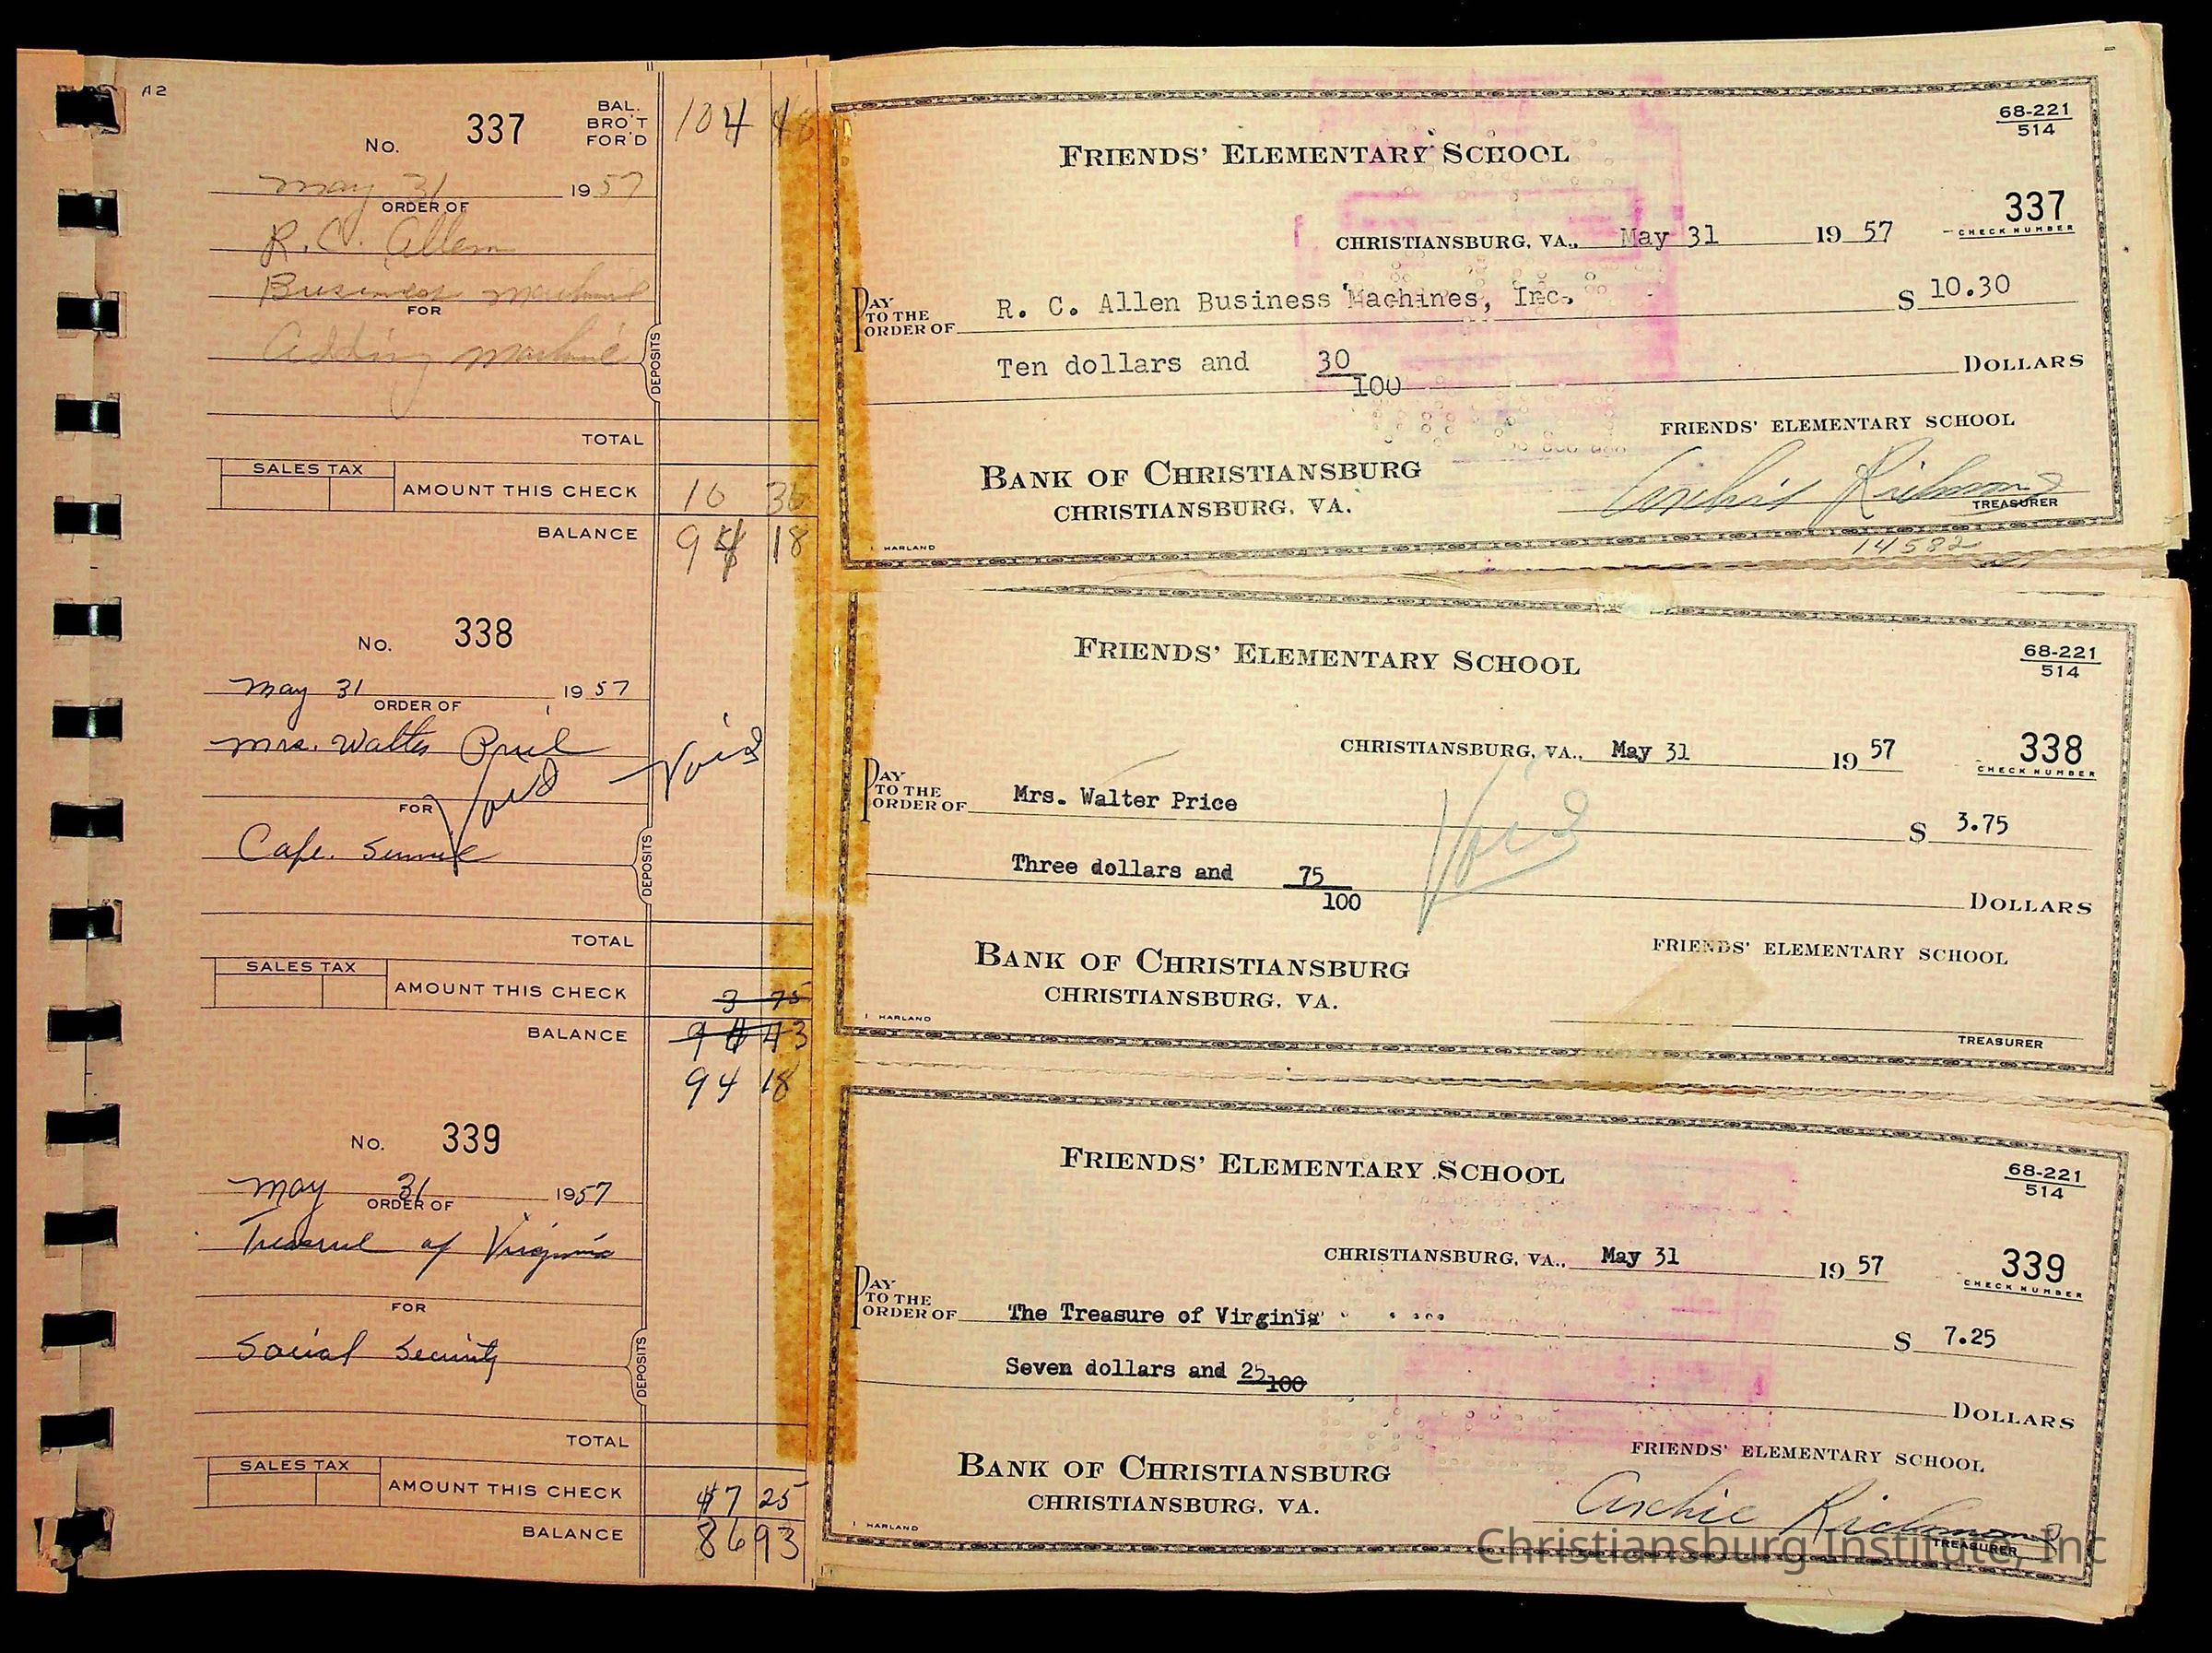 A2
No. 337 BAL. BRO'T FOR'D 104 48
May 31 1957
ORDER OF
R.C. Allen
Business machine
FOR
Adding machine
DEPOSITS
TOTAL
SALES TAX
AMOUNT THIS CHECK 10 30
BALANCE 94 18
No. 338
May 31 1957
ORDER OF
Mrs. Walter Price
Void Void
FOR
Cafe.
DEPOSITS
TOTAL
SALES TAX
AMOUNT THIS CHECK 3 75
BALANCE
94 18
No. 339
May 31 1957
ORDER OF
Treasure of Virginia
FOR
Social Security
DEPOSITS
TOTAL
SALES TAX
AMOUNT THIS CHECK 7 25
BALANCE 86 93
68-221
514
FRIENDS' ELEMENTARY SCHOOL
337
CHECK NUMBER
CHRISTIANSBURG, VA., May 31 19 57
PAY TO THE ORDER OF R. C. Allen Business Machines, Inc. $ 10.30
Ten dollars and 30/100 DOLLARS
FRIENDS' ELEMENTARY SCHOOL
BANK OF CHRISTIANSBURG
CHRISTIANSBURG, VA.
Archie Richmond
TREASURER
HARLAND
14582
68-221
514
FRIENDS' ELEMENTARY SCHOOL
338
CHECK NUMBER
CHRISTIANSBURG, VA., May 31 19 57
PAY TO THE ORDER OF Mrs. Walter Price $ 3.75
Void
Three dollars and 75/100 DOLLARS
FRIENDS' ELEMENTARY SCHOOL
BANK OF CHRISTIANSBURG
CHRISTIANSBURG, VA.
HARLAND
TREASURER
68-221
514
FRIENDS' ELEMENTARY SCHOOL
339
CHECK NUMBER
CHRISTIANSBURG, VA., May 31 19 57
PAY TO THE ORDER OF The Treasure of Virginia $ 7.25
Seven dollars and 25/100 DOLLARS
FRIENDS' ELEMENTARY SCHOOL
BANK OF CHRISTIANSBURG
CHRISTIANSBURG, VA.
Archie Richmond
TREASURER
HARLAND
Christiansburg Institute, Inc